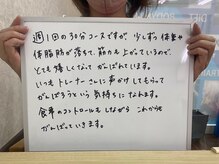 週1回の30分コースですが、少しずつ体重や
体脂肪が落ちて、筋力も上がっているので、
とても嬉しくなってがんばれています。
いつもトレーナーさんに声かけしてもらって
がんばろうという気持ちになれます。
食事のコントロールもしながら これからも
がんばっていきます。